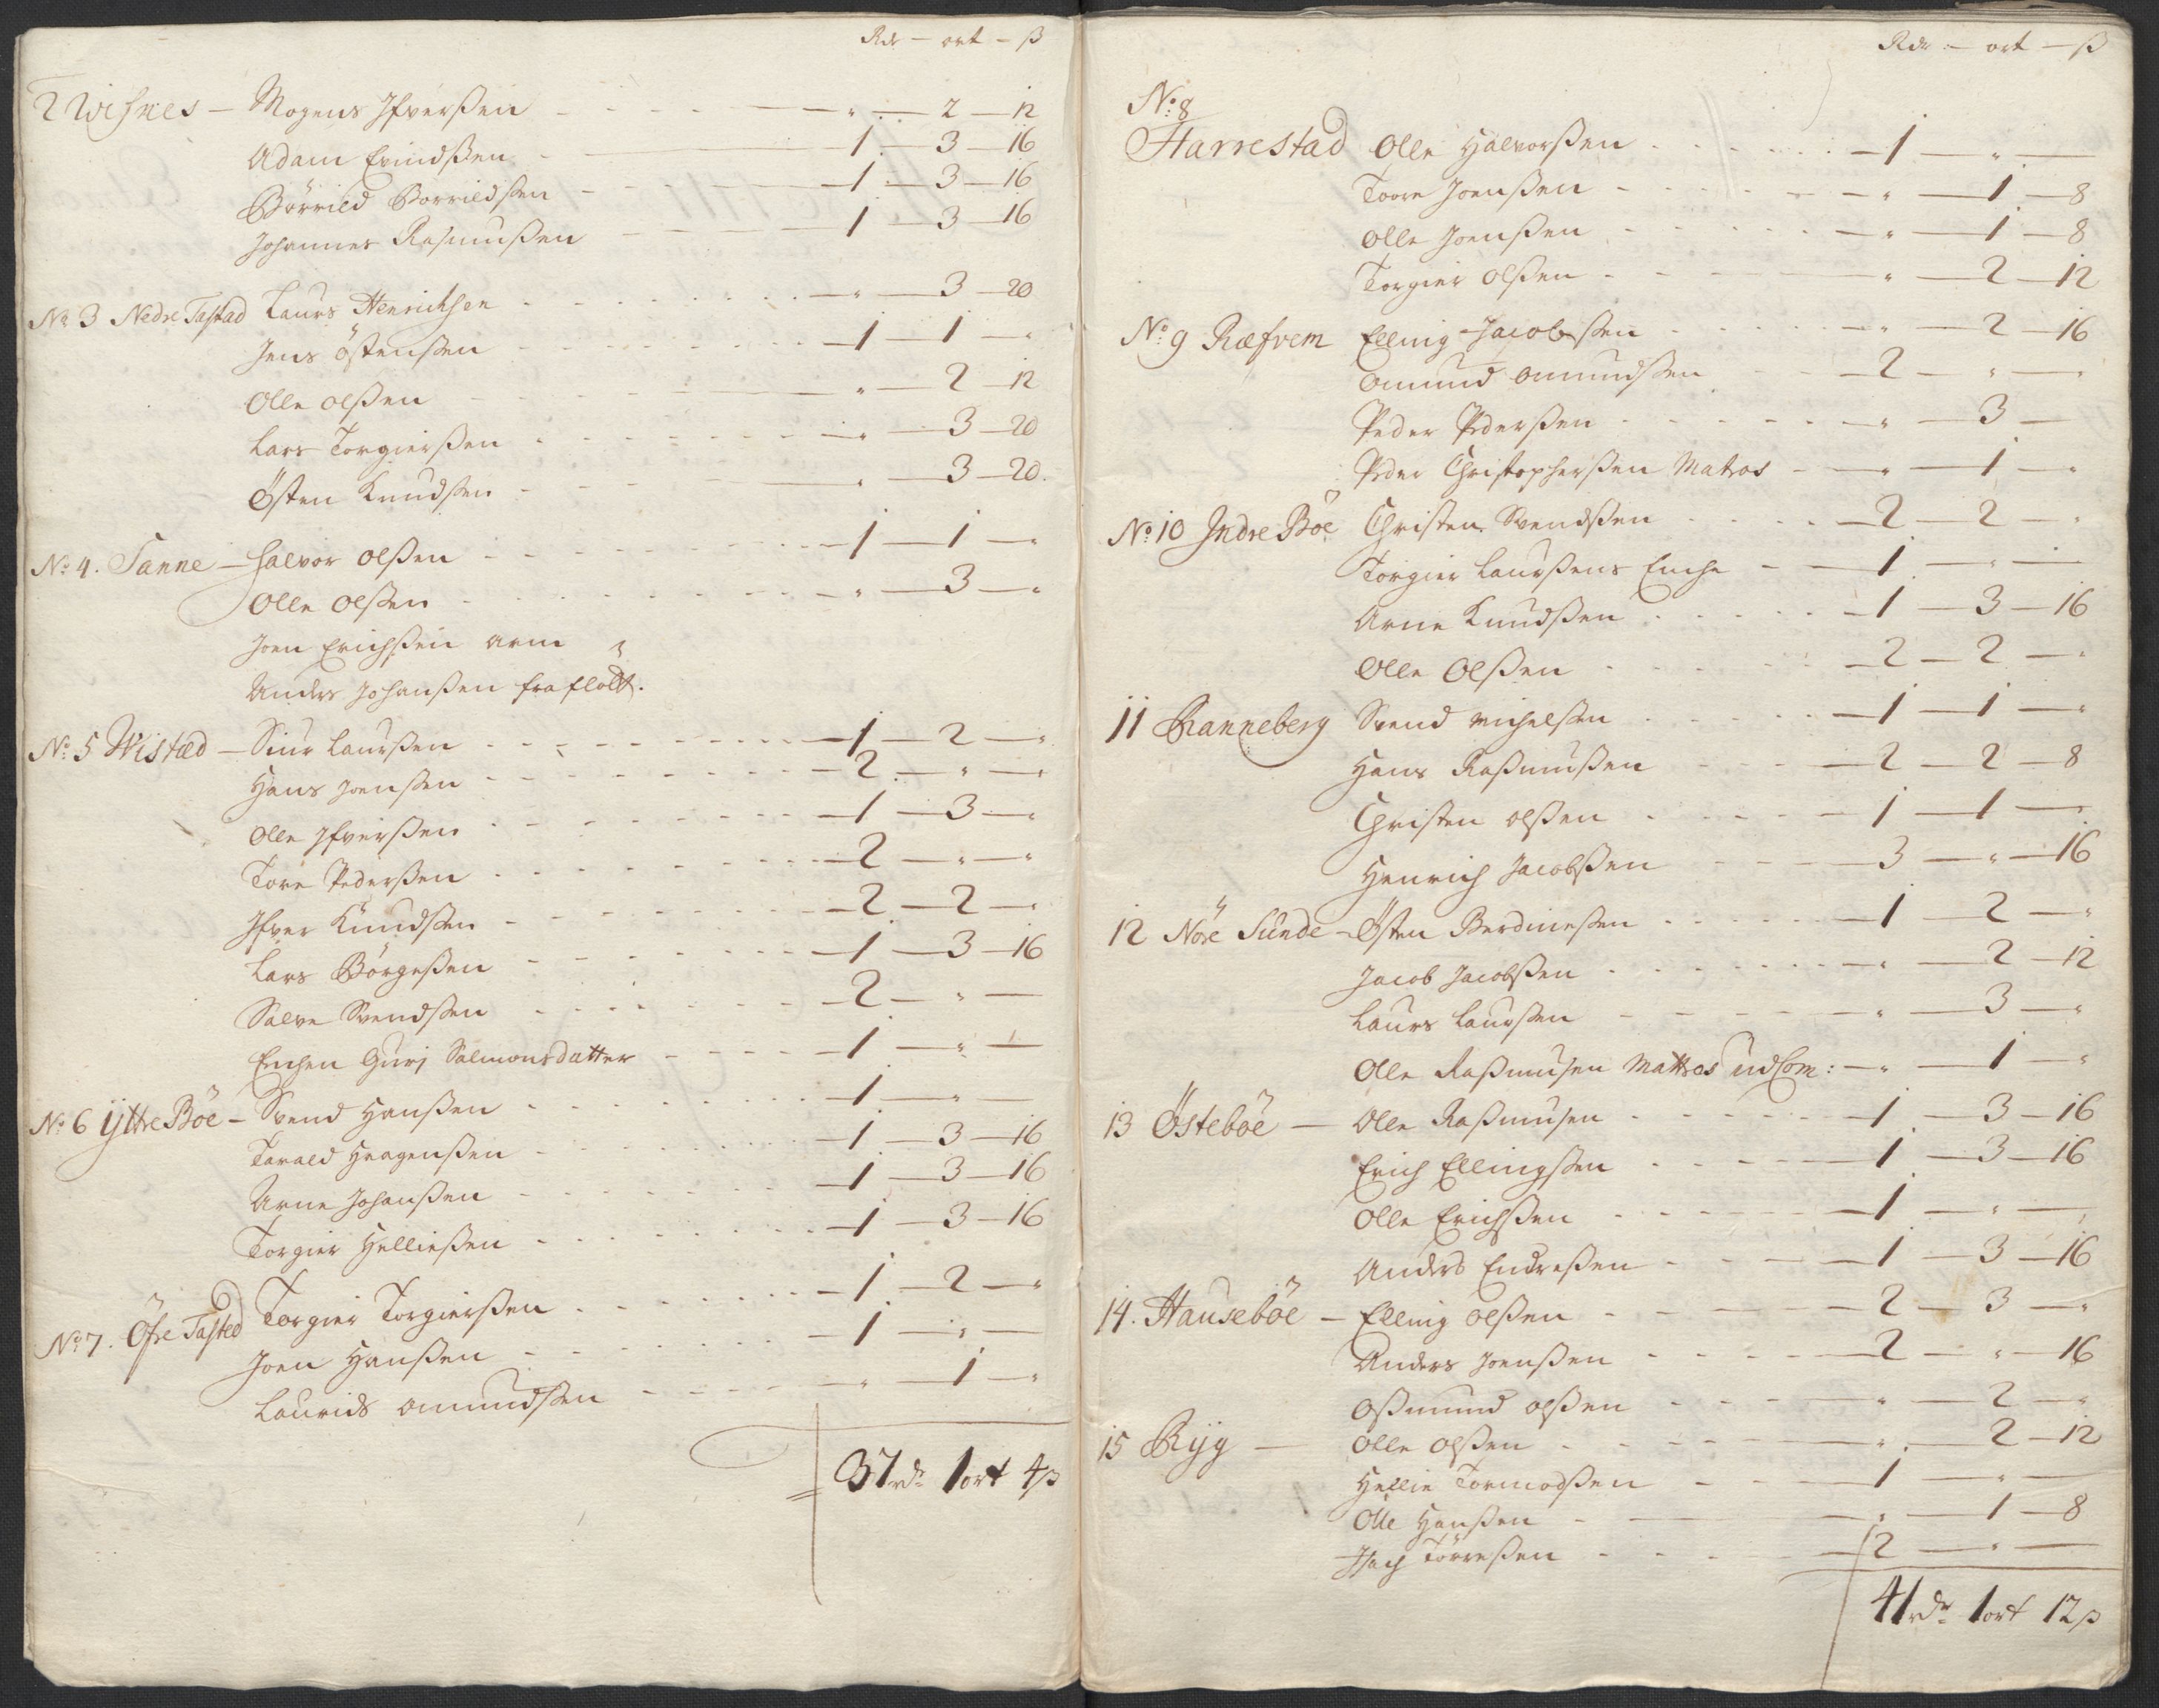 Rdr – ort – ß
2 Wisnes – Mogens Ifverßen — " — 2 — 12
Adam Evindßen — 1 — 3 — 16
Börrild Borrildßen — 1 — 3 — 16
Johannes Rasmußen — 1 — 3 — 16
No 3 Nedre Tastad Laurs Henrichsen — " — 3 — 20
Jens Östensen — 1 — 1 — "
Olle Olßen — " — 2 — 12
Lars Torgierßen — " — 3 — 20
Östen Knudsen — " — 3 — 20
No 4. Sanne – Halvor Olßen — 1 — 1 — "
Olle Olsen — " — 3 — "
Joen Erichßen arm
Anders Johanßen fraflött.
No 5 Wistad – Siur Laurßen — 1 — 2 — "
Hans Joensen — 2 — " — "
Olle Ifverßen — 1 — 3 — "
Tore Pederßen — 2 — " — "
Ifver Knudsen — 2 — 2 — "
Lars Börgeßen — 1 — 3 — 16
Salve Svendsen — 2 — " —
Enchen Guri Salmonsdatter — 1 — " —
No 6 Ÿttre Böe – Svend Hanßen — 1 — " —
Tarald Haagenßen — 1 — 3 — 16
Arne Johanßen — 1 — 3 — 16
Torgier Helließen — 1 — 3 — 16
No 7. Öfre Tasted Torgier Torgierßen — 1 — 2 — "
Joen Hanßen — 1 — " —
Laurids Omundsen — " — 1 — "
37 rdr 1 ort 4 ß
Rdr – ort – ß
No 8
Harrestad Olle Halvorßen — 1 — " —
Toore Joenßen — " — 1 — 8
Olle Joenßen — " — 1 — 8
Torgier Olßen — " — 2 — 12
No 9 Ræfvem Elling Jacobßen — " — 2 — 16
Omund Omundsen — 2 — " — "
Peder Pederßen — " — 3 —
Peder Christopherßen Matros — " — 1 — "
No 10 Indre Böe Christen Svendßen — 2 — 2 — "
Torgier Laurßens Enche — 1 — " —
Arne Knudßen — 1 — 3 — 16
Olle Olßen — 2 — 2 — "
11 Ranneberg Svend Michelsen — 1 — 1 — "
Hans Raßmußen — 2 — 2 — 8
Christen Olßen — 1 — 1 — "
Henrich Jacobßen — 3 — " — 16
12 Nöre Sunde – Östen Berdineßen — 1 — 2 — "
Jacob Jacobßen — " — 2 — 12
Laurs Laursen — " — 3 — "
Olle Raßmusen Mattros udCom: — " — 1 — "
13 Östeböe — Olle Raßmusen — 1 — 3 — 16
Erich Ellingsen — 1 — 3 — 16
Olle Erichßen — 1 — " —
Anders Endreßen — 1 — 3 — 16
14. Hauseböe – Elling Olßen — 2 — 3 — "
Anders Joenßen — 2 — " — 16
Oßmund Olßen — " — 2 — "
15 Ryg — Olle Olßen — " — 2 — 12
Hellie Tormodßen — 1 — " —
Olle Hanßen — " — 1 — 8
Isach Törreßen — 2 — " —
41 rdr 1 ort 12 ß